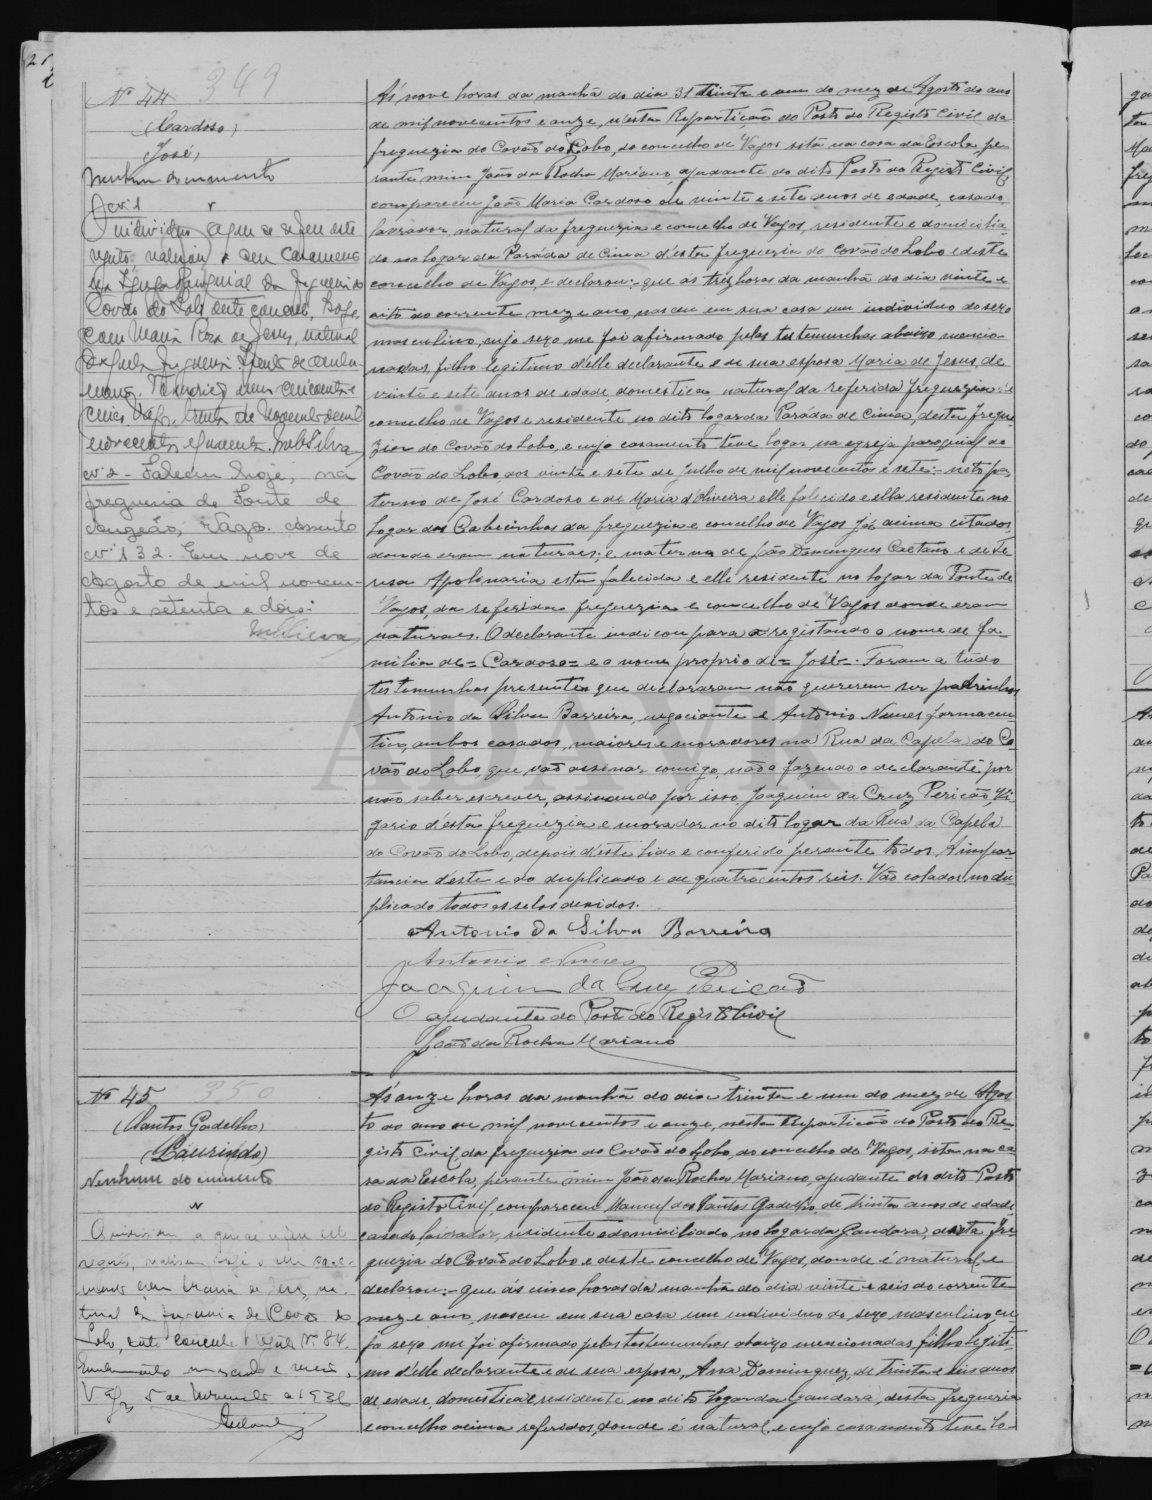 Nº 44 349
(Cardoso)
José,
Nenhum documento
Civil
O individuo a quem se refere este
registo realizou o seu casamento
na Igreja Paroquial da freguesia do
Covão do Lobo deste concelho, hoje,
com Maria Rosa de Jesus, natural
da freguesia
cinco. Vagos, trinta de Novembro de mil
novecentos e quarenta.
nº 2 - Faleceu hoje, na
freguesia de Fonte de
Angeão, Vagos. Assento
nº 132. Em nove de
Agosto de mil novecen-
tos e setenta e dois.
Às nove horas da manhã do dia 31 trinta e um do mez de Agosto do ano
de mil novecentos e onze, n'esta Repartição do Posto do Registo Civil da
freguezia do Covão do Lobo, do concelho de Vagos sita na casa da Escola, pe-
rante mim João da Rocha Mariano, ajudante do dito Posto do Registo Civil,
compareceu João Maria Cardoso de vinte e sete anos de edade, casado,
lavrador, natural da freguezia e concelho de Vagos, residente e domicilia-
do no logar da Parada de Cima d'esta freguezia do Covão do Lobo e deste
concelho de Vagos, e declarou:- que ás tres horas da manhã do dia vinte e
oito do corrente mez e ano nasceu em sua casa um individuo do sexo
masculino, cujo sexo me foi afirmado pelas testemunhas abaixo mencio-
nadas, filho legitimo d'elle declarante e de sua esposa Maria de Jesus, de
vinte e sete anos de edade, domestica, natural da referida freguezia e
concelho de Vagos e residente no dito logar da Parada de Cima, desta fregue-
zia do Covão do Lobo, e cujo casamento teve logar na egreja paroquial do
Covão do Lobo, aos vinte e sete de Julho de mil novecentos e sete:- neto pa-
terno de José Cardoso e de Maria d'Oliveira elle falecido e ella residente no
logar das Cabecinhas da freguezia e concelho de Vagos já acima citados
donde eram naturaes; e materno de João Domingues Caetano e de Te-
resa Apolinaria esta falecida e elle residente no logar da Ponte de
Vagos, da referida freguezia e concelho de Vagos donde eram
naturaes. O declarante indicou para o registando o nome de fa-
milia de = Cardoso = e o nome proprio de = José =. Foram a tudo
testemunhas presentes que declararam não quererem ser padrinhos
Antonio da Silva Barreira, negociante e Antonio Nunes farmaceu-
tico, ambos casados, maiores e moradores na Rua da Capela do Co-
vão do Lobo, que vão assinar comigo, não o fazendo o declarante por
não saber escrever, assinando por isso Joaquim da Cruz Pericão, Vi-
gario d'esta freguezia e morador no dito logar da Rua da Capela
do Covão do Lobo, depois d'este lido e conferido perante todos. A impor-
tancia d'este e do duplicado é de quatrocentos reis. Vão colados no du-
plicado todos os selos devidos.
Antonio da Silva Barreira
Antonio Nunes
Joaquim da Cruz Pericão
O ajudante do Posto do Registo Civil
João da Rocha Mariano
Nº 45 350
(Santos Gadelho)
(Laurindo)
Nenhum documento
O individuo a quem
mento com Maria de Jesus, na-
tural da freguesia de Covão do
Lobo, deste concelho Nº 84.
Vagos, 5 de Novembro de 1936
Ás onze horas da manhã do dia trinta e um do mez de Agos-
to do ano de mil novecentos e onze, nesta Repartição do Posto do Re-
gisto Civil da freguezia do Covão do Lobo, do concelho de Vagos, sita na ca-
sa da Escola, perante mim João da Rocha Mariano, ajudante do dito Posto
do Registo Civil compareceu Manuel dos Santos Gadelho, de trinta anos de edade
casado, lavrador, residente e domiciliado no logar da Gandara, desta fre-
guezia do Covão do Lobo e deste concelho de Vagos, donde é natural e
declarou:- que ás cinco horas da manhã do dia vinte e seis do corrente
mez e ano, nasceu em sua casa um individuo do sexo masculino, cu-
jo sexo me foi afirmado pelas testemunhas abaixo mencionadas, filho legiti-
mo d'elle declarante e de sua esposa, Ana Domingues, de trinta e seis anos
de edade, domestica e residente no dito logar da Gandara, desta freguezia
e concelho acima referidos, donde é natural, e cujo casamento teve lo-